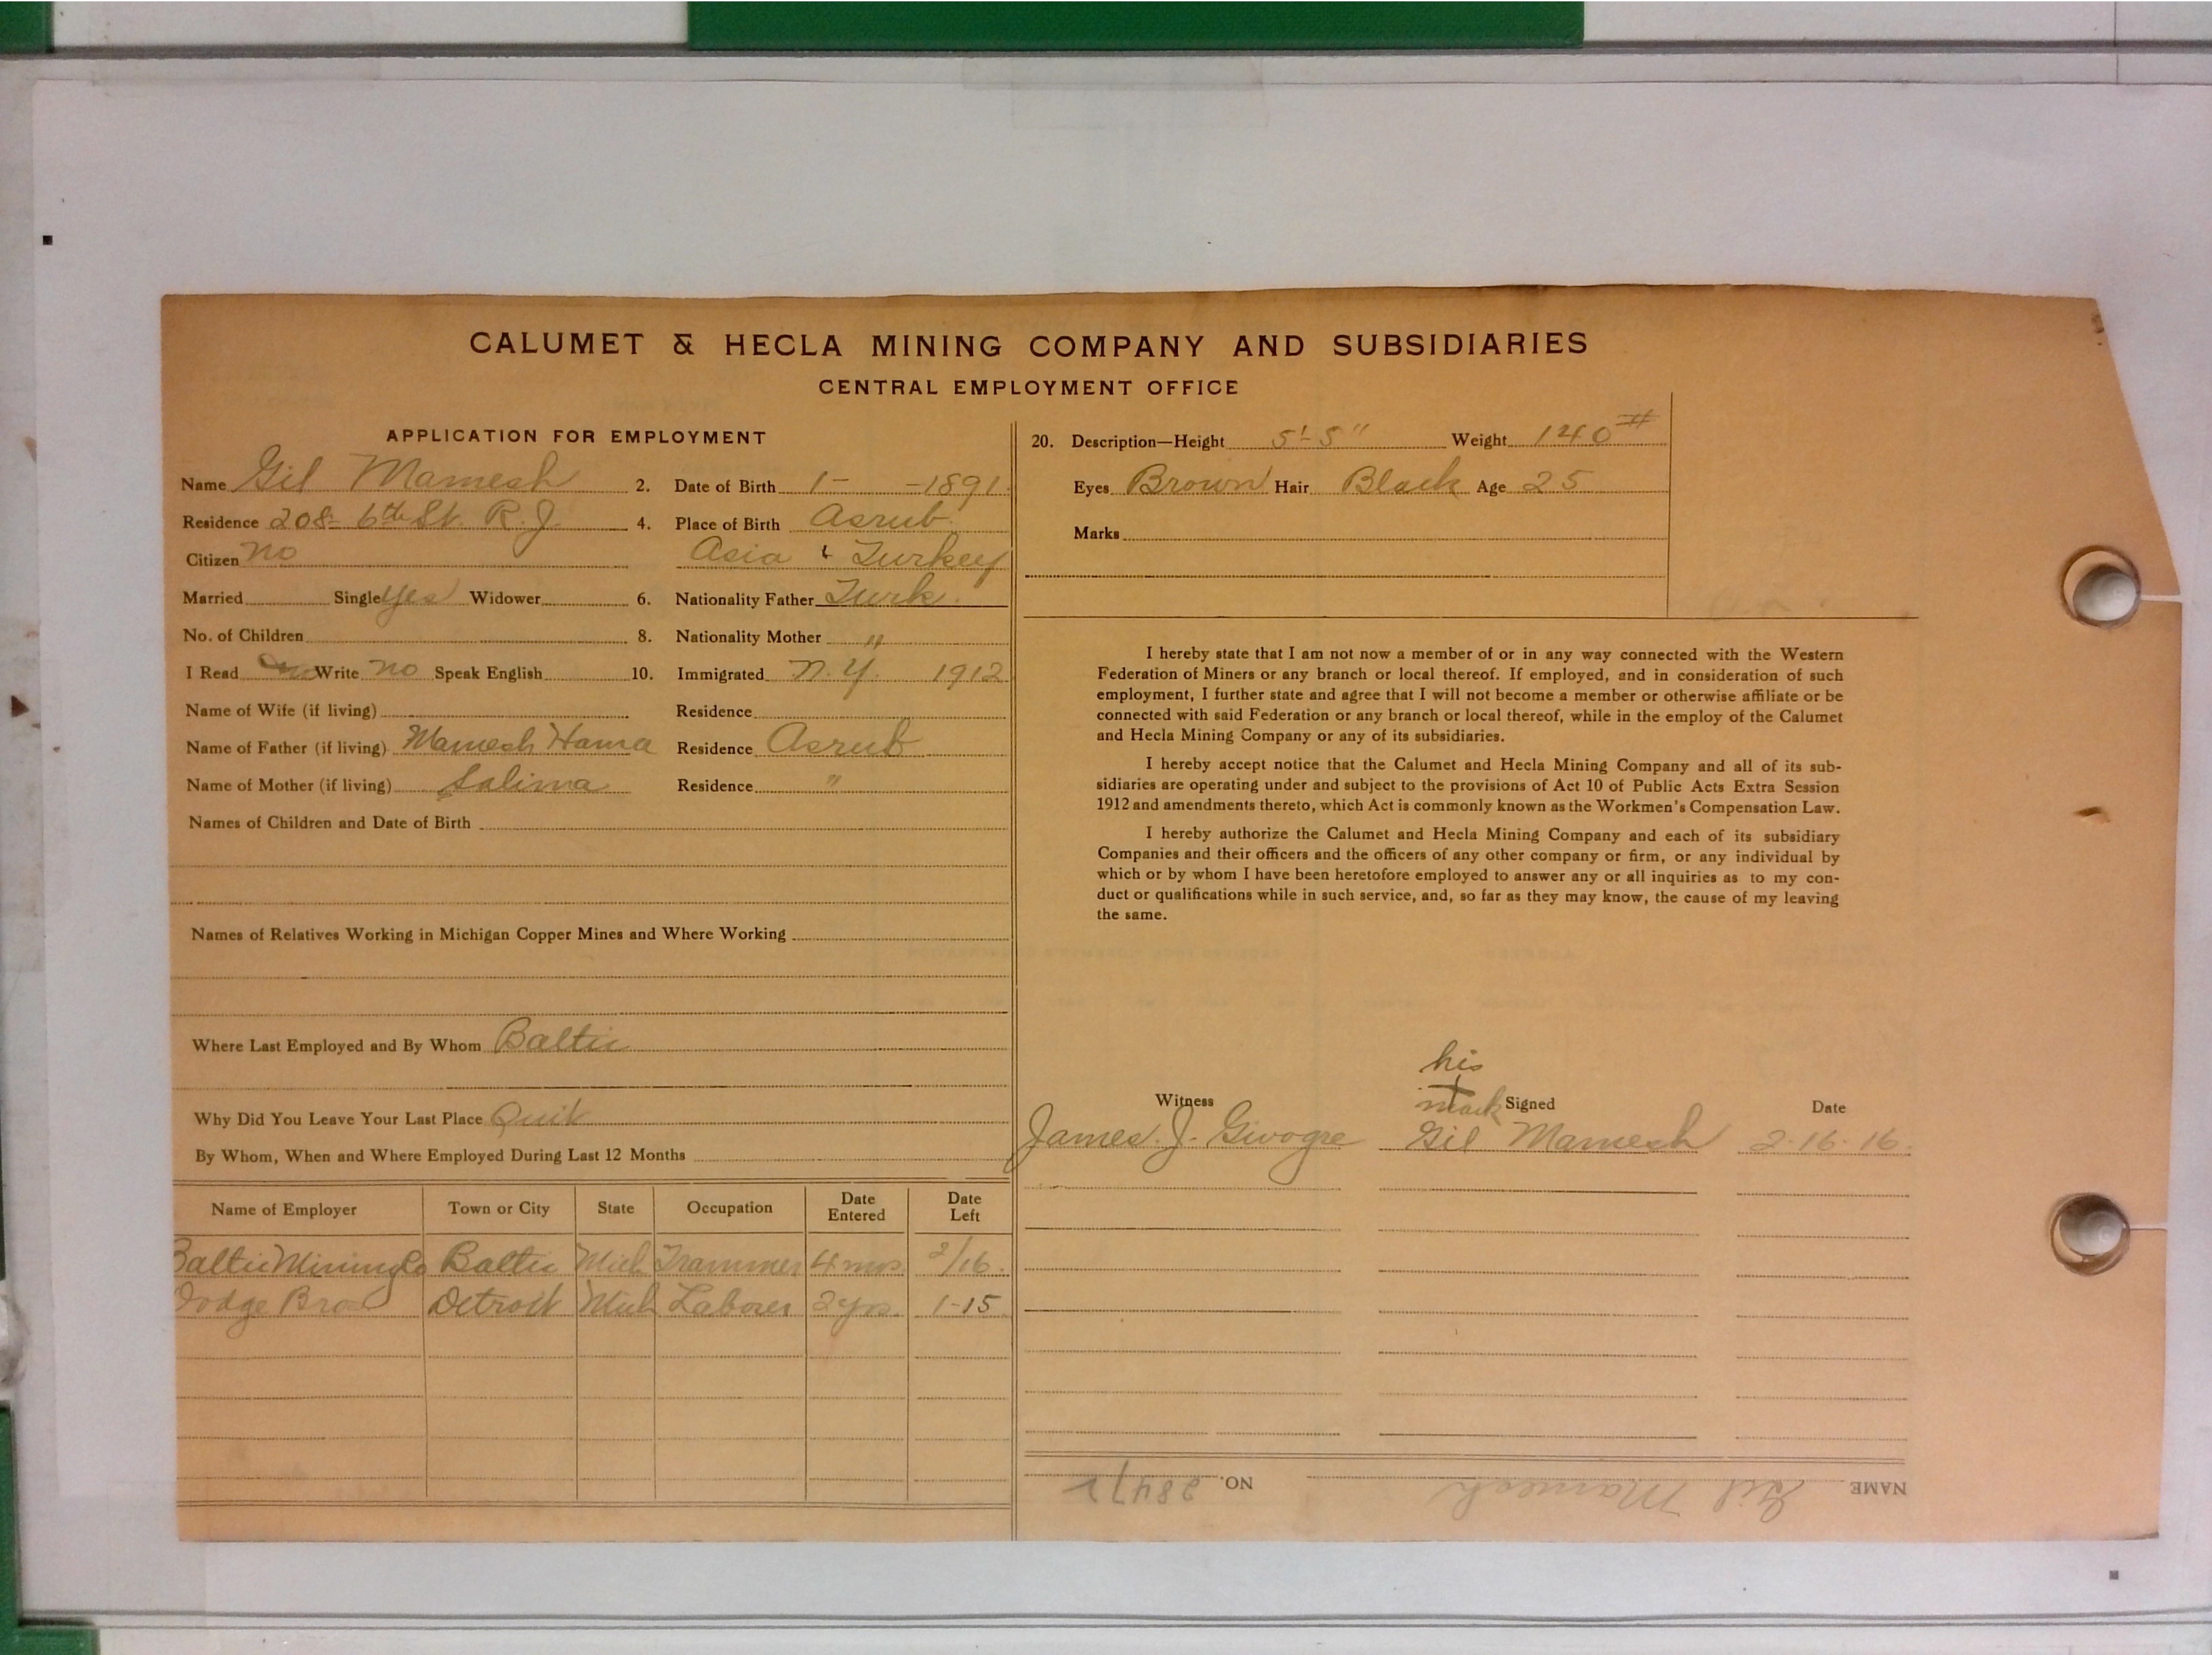 CALUMET & HECLA MINING COMPANY AND SUBSIDIARIES
CENTRAL EMPLOYMENT OFFICE
APPLICATION FOR EMPLOYMENT
Name Gil Mamesh 2. Date of Birth 1- -1891
Residence 208- 6th St. R. J. 4. Place of Birth Asrub
Citizen no Asia Turkey
Married Single yes Widower 6. Nationality Father Turk.
No. of Children 8. Nationality Mother "
I Read Write no Speak English 10. Immigrated N.Y. 1912
Name of Wife (if living) Residence
Name of Father (if living) Mamesh Hama Residence Asrub
Name of Mother (if living) Salima Residence "
Names of Children and Date of Birth
Names of Relatives Working in Michigan Copper Mines and Where Working
Where Last Employed and By Whom Baltic
Why Did You Leave Your Last Place Quit
By Whom, When and Where Employed During Last 12 Months
Name of Employer Town or City State Occupation Date Entered Date Left
Baltic Mining Co Baltic Mich Trammer 4 mos. 2/16.
Dodge Bros Detroit Mich Laborer 2 yrs. 1-15
20. Description—Height 5'-5" Weight 140#
Eyes Brown Hair Black Age 25
Marks
I hereby state that I am not now a member of or in any way connected with the Western
Federation of Miners or any branch or local thereof. If employed, and in consideration of such
employment, I further state and agree that I will not become a member or otherwise affiliate or be
connected with said Federation or any branch or local thereof, while in the employ of the Calumet
and Hecla Mining Company or any of its subsidiaries.
I hereby accept notice that the Calumet and Hecla Mining Company and all of its sub-
sidiaries are operating under and subject to the provisions of Act 10 of Public Acts Extra Session
1912 and amendments thereto, which Act is commonly known as the Workmen's Compensation Law.
I hereby authorize the Calumet and Hecla Mining Company and each of its subsidiary
Companies and their officers and the officers of any other company or firm, or any individual by
which or by whom I have been heretofore employed to answer any or all inquiries as to my con-
duct or qualifications while in such service, and, so far as they may know, the cause of my leaving
the same.
his
Witness mark Signed Date
James J. Givogre Gil Mamesh 2-16-16.
NAME Gil Mamesh NO. 28472